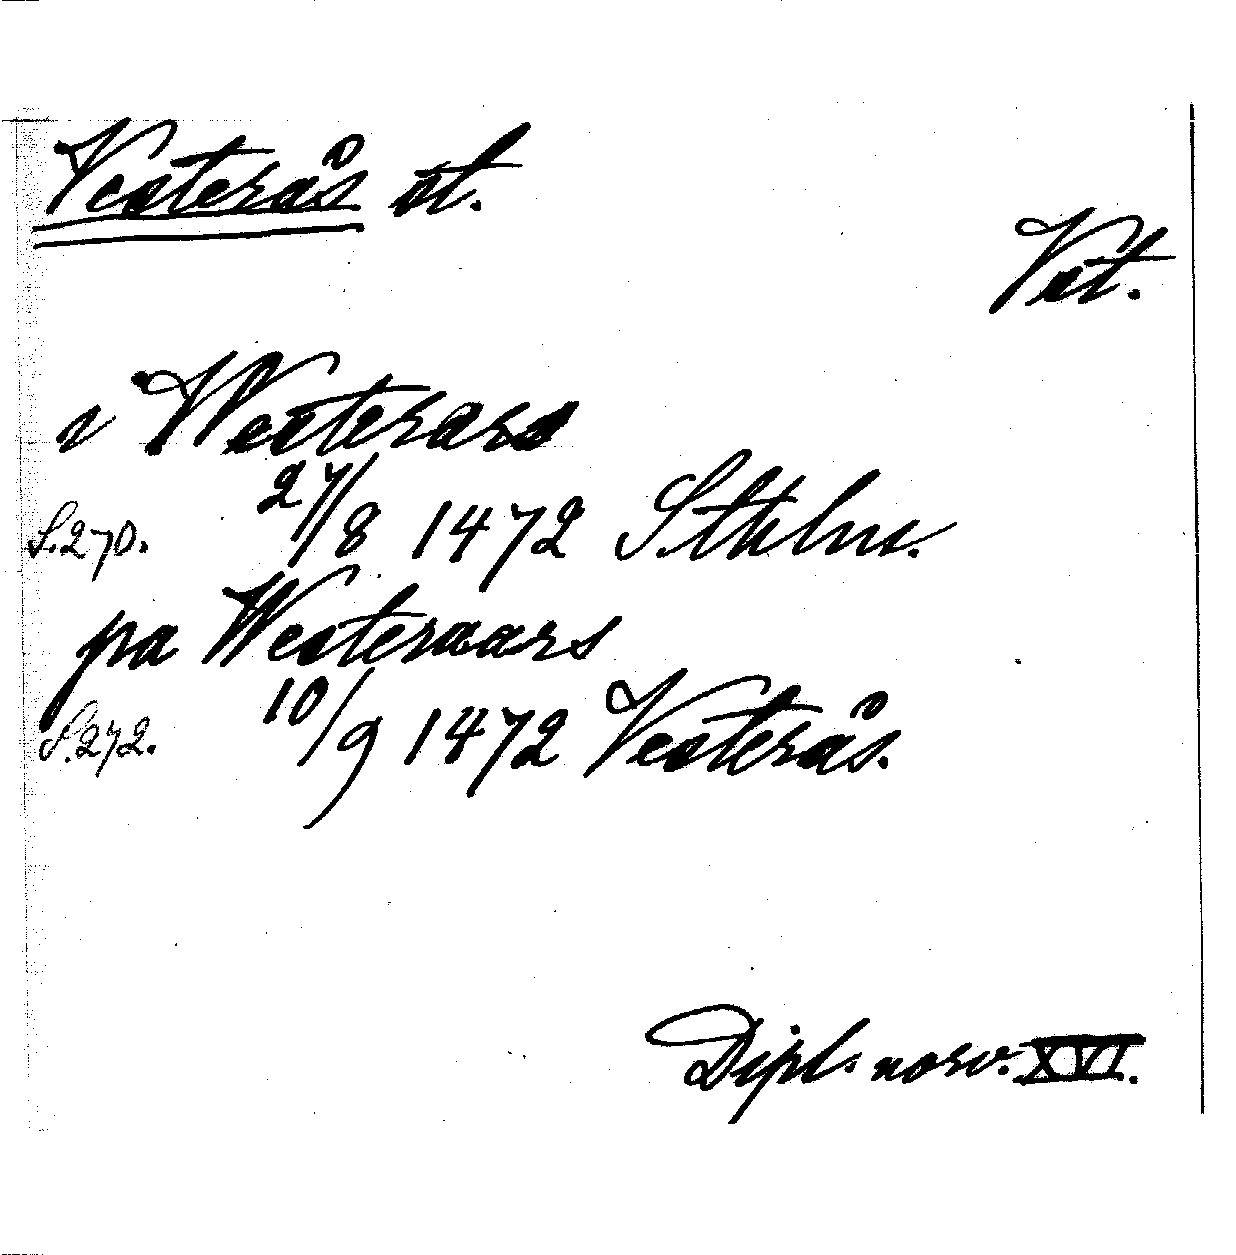 Vesterås st.
Vst.
i Westerars
S. 270. 27/8 1472 Sthlm.
pa Westeraars
S. 272. 10/9 1472 Vesterås.
Dipl. norv. XVI.